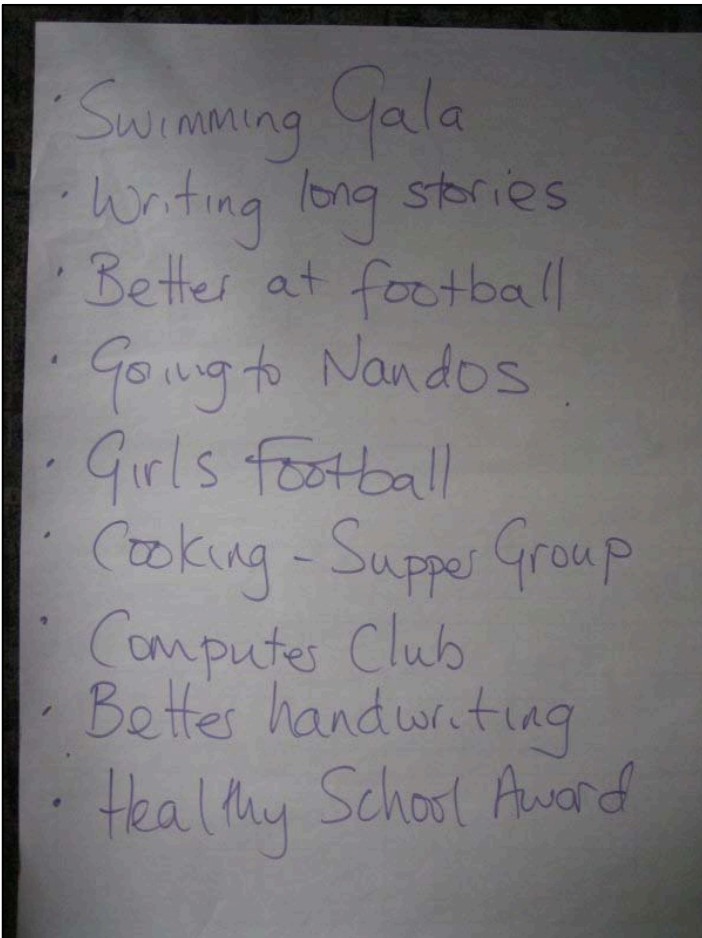 · Swimming Gala
· Writing long stories
· Better at football
· Going to Nandos
· Girls Football
· Cooking - Supper Group
· Computer Club
· Better handwriting
· Healthy School Award